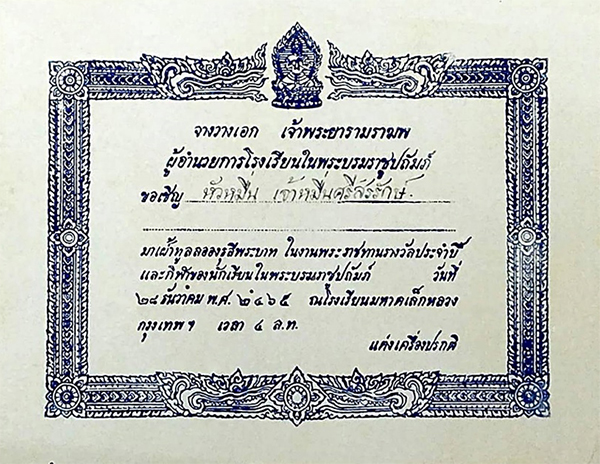 จางวางเอก เจ้าพระยารามราฆพ
ผู้อำนวยการโรงเรียนในพระบรมราชูปถัมภ์
ขอเชิญ หัวหมื่น เจ้าหมื่นศรีสรรักษ์.
มาเฝ้าทูลลอองธุลีพระบาท ในงานพระราชทานรางวัลประจำปี
และกีฬาของนักเรียนในพระบรมราชูปถัมภ์ วันที่
๒๘ ธันวาคม พ.ศ. ๒๔๖๕ ณโรงเรียนมหาดเล็กหลวง
กรุงเทพฯ เวลา ๔ ล.ท.
แต่งเครื่องปรกติ